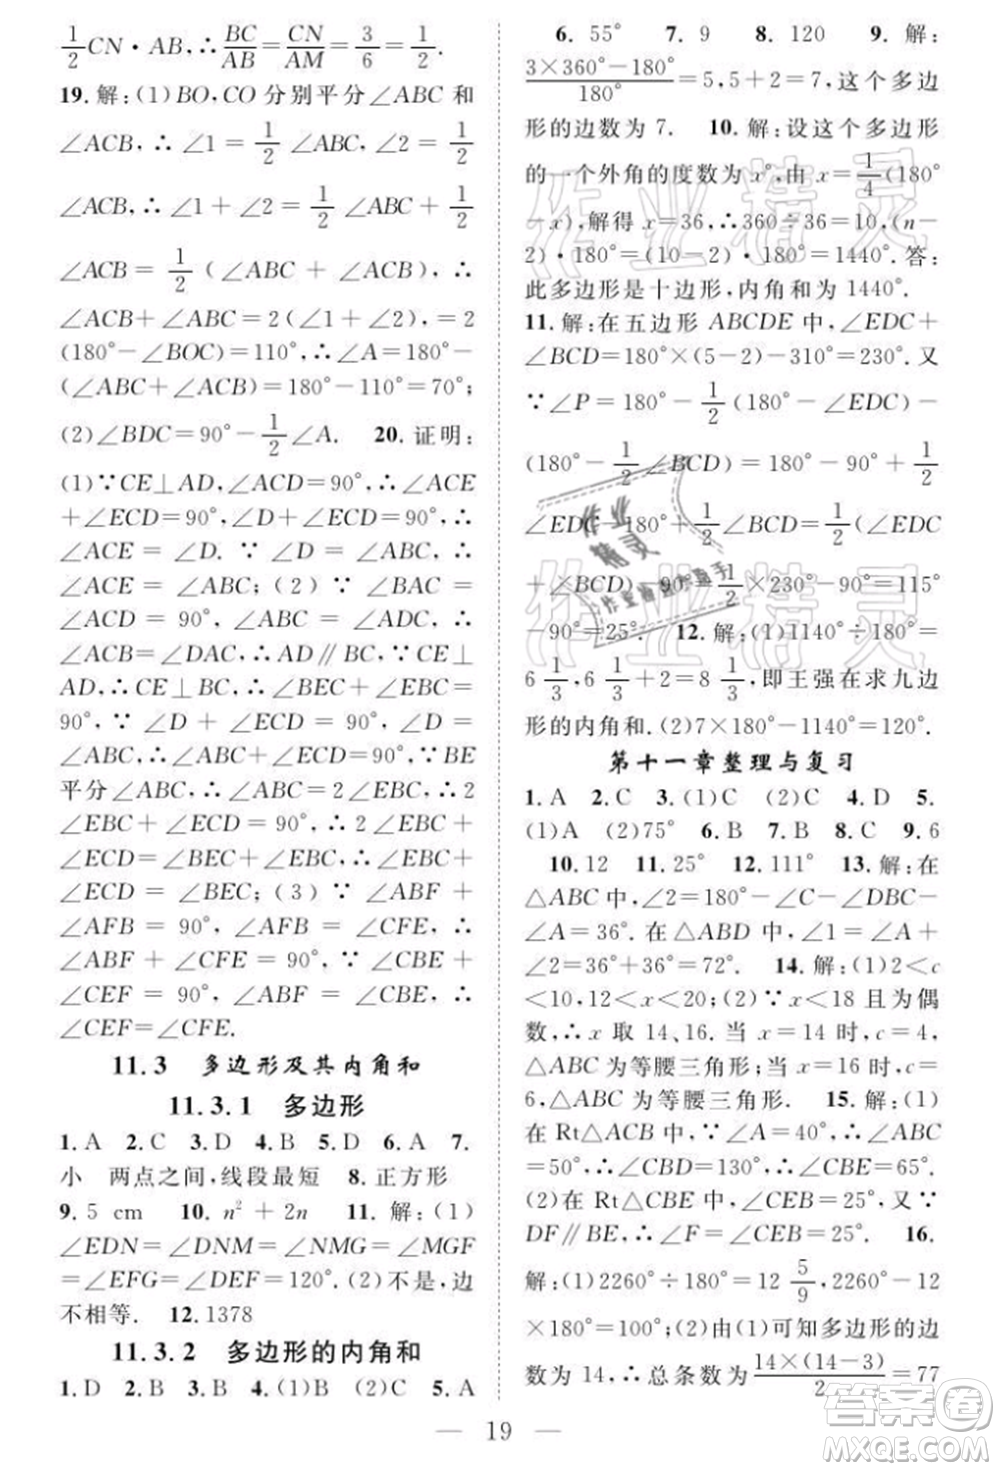 1/2 CN·AB,∴ BC/AB = CN/AM = 3/6 = 1/2.
19.解:(1)BO,CO 分别平分∠ABC 和
∠ACB,∴∠1= 1/2 ∠ABC,∠2= 1/2
∠ACB,∴∠1+∠2= 1/2 ∠ABC+ 1/2
∠ACB = 1/2 (∠ABC + ∠ACB),∴
∠ACB+∠ABC=2(∠1+∠2),=2
(180°-∠BOC)=110°,∴∠A=180°-
(∠ABC+∠ACB)=180°-110°=70°;
(2)∠BDC=90°- 1/2 ∠A. 20.证明:
(1)∵CE⊥AD,∠ACD=90°,∴∠ACE
+∠ECD=90°,∠D+∠ECD=90°,∴
∠ACE = ∠D. ∵ ∠D = ∠ABC,∴
∠ACE = ∠ABC; (2) ∵ ∠BAC =
∠ACD = 90°, ∠D = ∠ABC, ∴
∠ACB=∠DAC,∴AD∥BC,∵CE⊥
AD,∴CE⊥BC,∴∠BEC+∠EBC=
90°, ∵ ∠D + ∠ECD = 90°, ∴
∠ABC + ∠ECD = 90°, ∵ BE
平分∠ABC,∴∠ABC=2∠EBC,∴2
∠EBC + ∠ECD = 90°, ∴ 2
∠EBC+∠ECD=∠BEC+∠EBC,∴
∠ECD = ∠BEC; (3) ∵ ∠ABF +
∠AFB = 90°, ∠AFB = ∠CFE, ∴
∠ABF + ∠CFE = 90°, ∵ ∠CBE +
∠CEF = 90°, ∠ABF = ∠CBE, ∴
∠CEF=∠CFE.
11.3 多边形及其内角和
11.3.1 多边形
1.A 2.C 3.D 4.B 5.D 6.A 7.
小 两点之间,线段最短 8.正方形
9.5 cm 10.n²+2n 11.解:(1)
∠EDN=∠DNM=∠NMG=∠MGF
=∠EFG=∠DEF=120°.(2)不是,边
不相等. 12.1378
11.3.2 多边形的内角和
1.D 2.A 3.B 4.(1)B (2)C 5.A
6.55° 7.9 8.120 9.解:
(3×360°-180°)/180° =5,5+2=7,这个多边
形的边数为 7. 10.解:设这个多边形
的一个外角的度数为 x°,由 x= 1/4 (180°
-x),解得 x=36,∴360÷36=10,(n-
2)·180°=(10-2)·180°=1440°.答:
此多边形是十边形,内角和为 1440°.
11.解:在五边形 ABCDE 中,∠EDC+
∠BCD=180°×(5-2)-310°=230°.又
∵∠P=180°- 1/2 (180°-∠EDC)-
(180°- 1/2 ∠BCD)=180°-90°+ 1/2
∠EDC-180°+ 1/2 ∠BCD= 1/2 (∠EDC
+∠BCD)-90°= 1/2 ×230°-90°=115°
-90°=25°. 12.解:(1)1140°÷180°=
6 1/3,6 1/3 +2=8 1/3,即王强在求九边
形的内角和.(2)7×180°-1140°=120°.
第十一章整理与复习
1.A 2.C 3.(1)C (2)C 4.D 5.
(1)A (2)75° 6.B 7.B 8.C 9.6
10.12 11.25° 12.111° 13.解:在
△ABC 中,∠2=180°-∠ABC-∠C
-∠A=36°.在△ABD 中,∠1=∠A+
∠2=36°+36°=72°. 14.解:(1)2<c
<10,12<x<20;(2)∵x<18 且为偶
数,∴x 取 14、16.当 x=14 时,c=4,
∴△ABC 为等腰三角形;当 x=16 时,c=
6,△ABC 为等腰三角形. 15.解:(1)
在 Rt△ACB 中,∵∠A=40°,∴∠ABC
=50°,∴∠CBD=130°,∴∠CBE=65°.
(2)在 Rt△CBE 中,∠CEB=25°,又∵
DF∥BE,∴∠F=∠CEB=25° 16.
解:(1)2260°÷180°=12 5/9,2260°-12
×180°=100°;(2)由(1)可知多边形的边
数为 14,∴总条数为 14×(14-3)/2 =77
19
作业精灵
答案圈
MXQE.COM